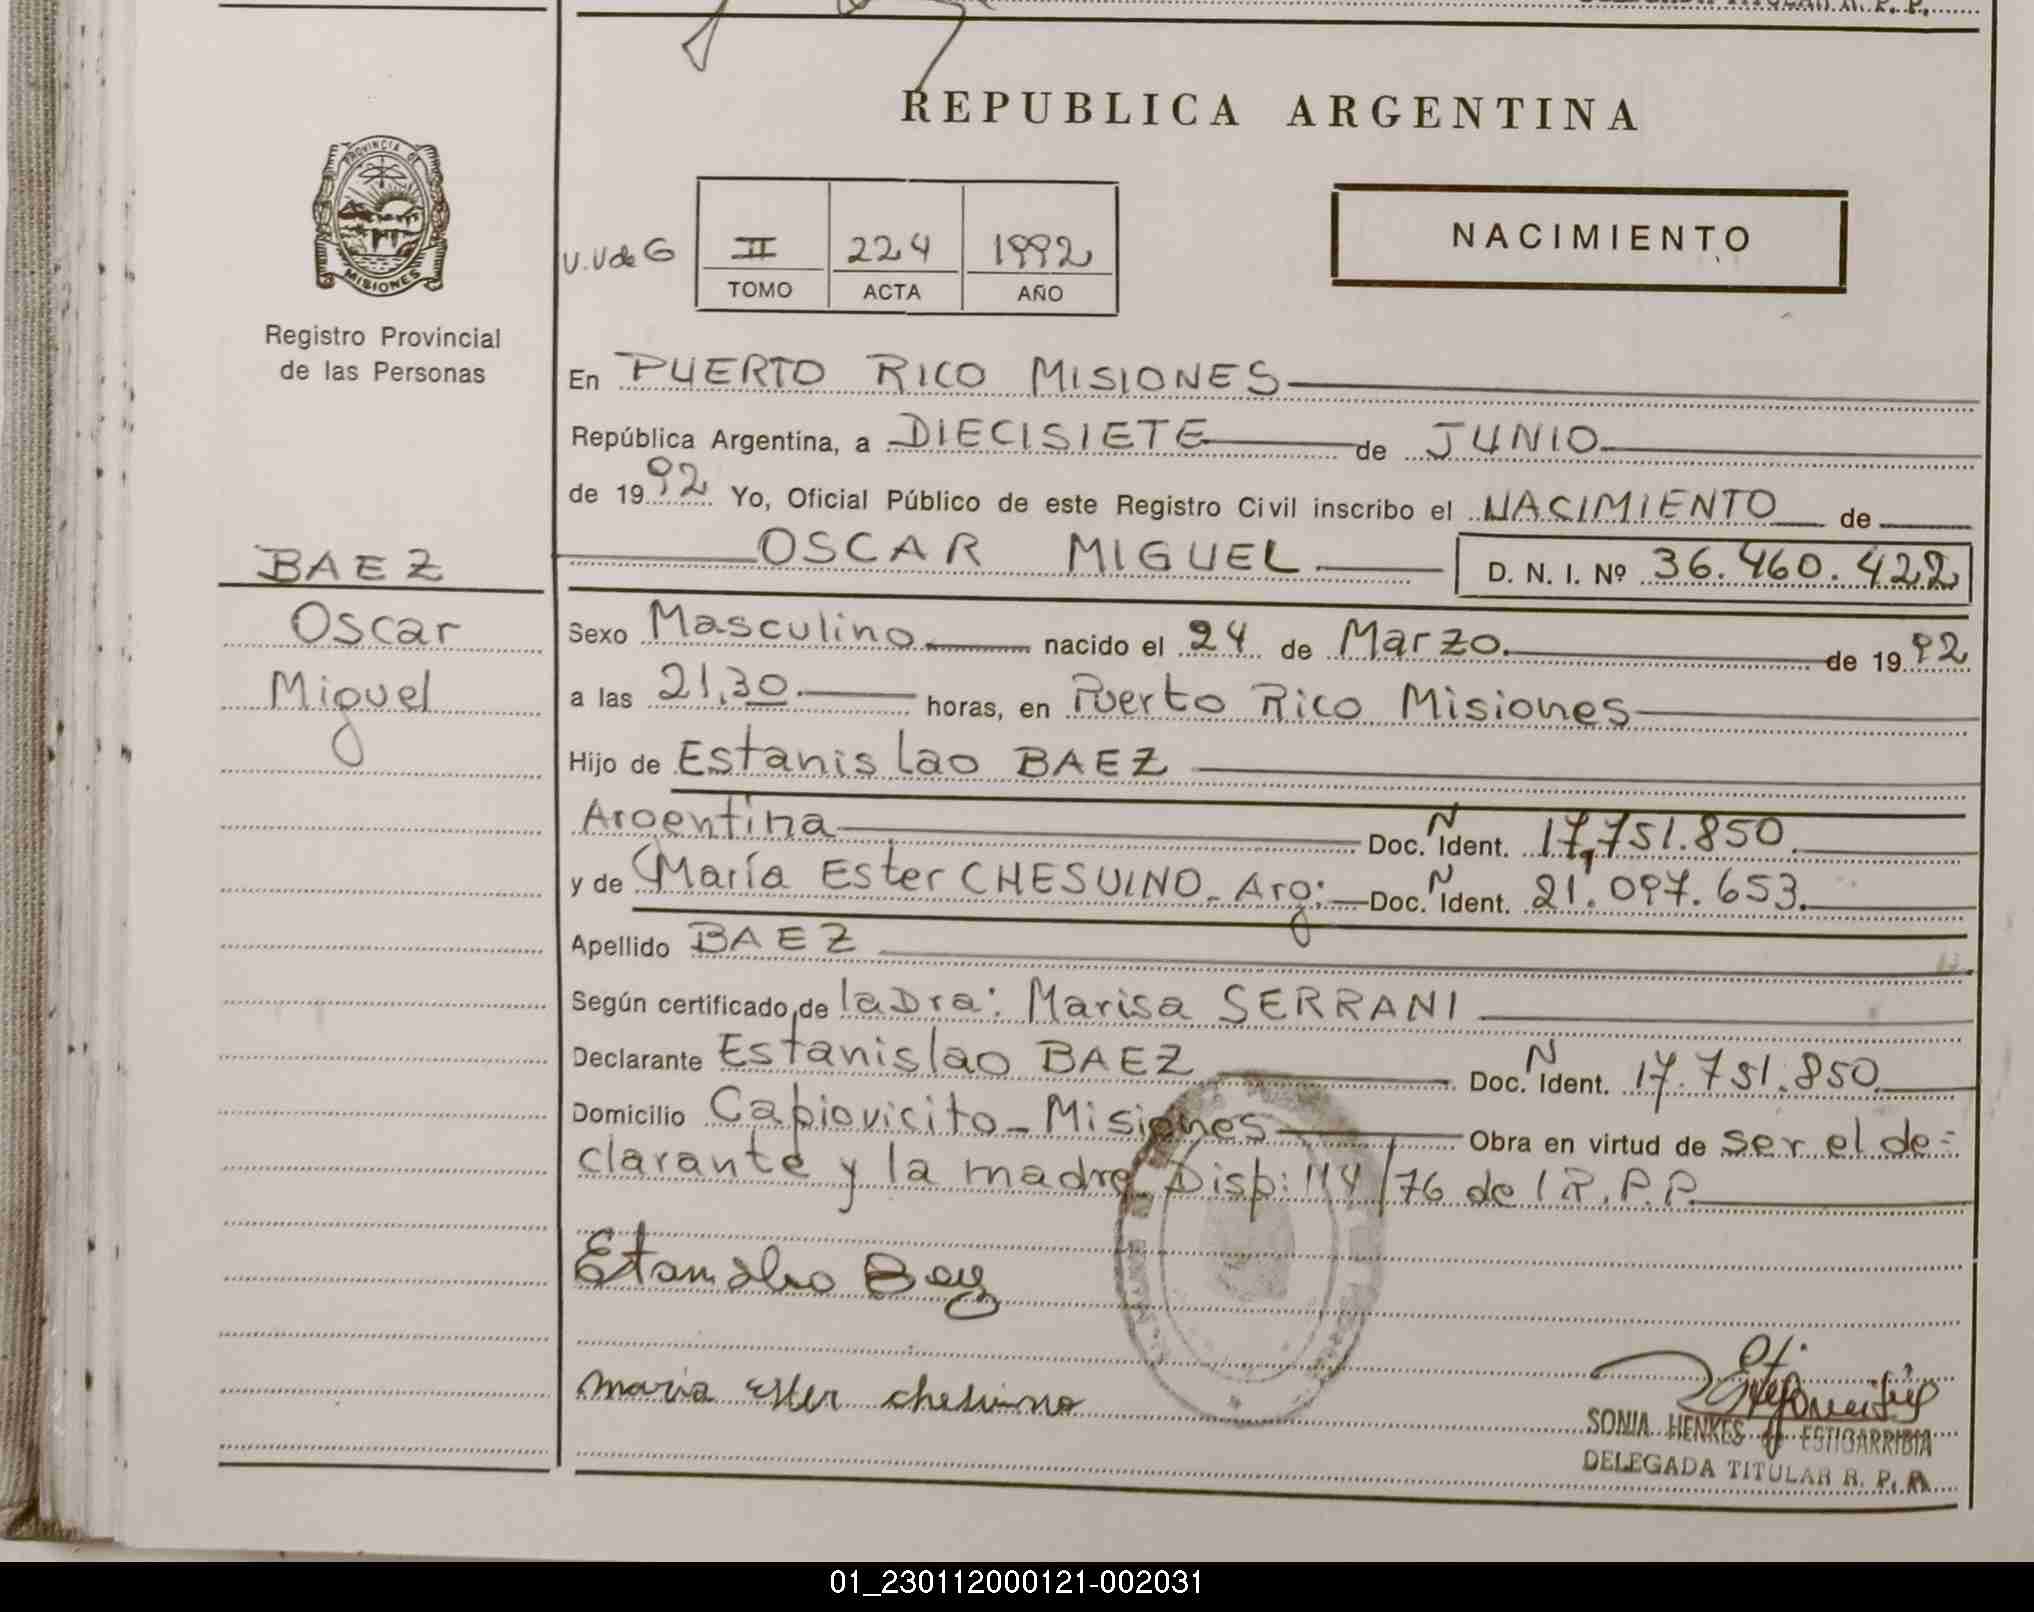 REPUBLICA ARGENTINA
PROVINCIA DE
MISIONES
Registro Provincial
de las Personas
NACIMIENTO
U.V de G
II 224 1992
TOMO ACTA AÑO
En PUERTO RICO MISIONES
República Argentina, a DIECISIETE de JUNIO
de 1992 Yo, Oficial Público de este Registro Civil inscribo el NACIMIENTO de
OSCAR MIGUEL D. N. I. Nº 36.460.422
BAEZ
Oscar
Miguel
Sexo Masculino nacido el 24 de Marzo de 1992
a las 21,30 horas, en Puerto Rico Misiones
Hijo de Estanislao BAEZ
Argentina Doc. N Ident. 17.751.850
y de María Ester CHESUINO - Arg: Doc. N Ident. 21.097.653
Apellido BAEZ
Según certificado de la Dra: Marisa SERRANI
Declarante Estanislao BAEZ Doc. N Ident. 17.751.850
Domicilio Capiovicito - Misiones Obra en virtud de ser el de=
clarante y la madre Disp: 114/76 del R.P.P.
Estanislao Baez
maria ester chesuino
SONIA HENKES de ESTIGARRIBIA
DELEGADA TITULAR R. P. P.
01_230112000121-002031